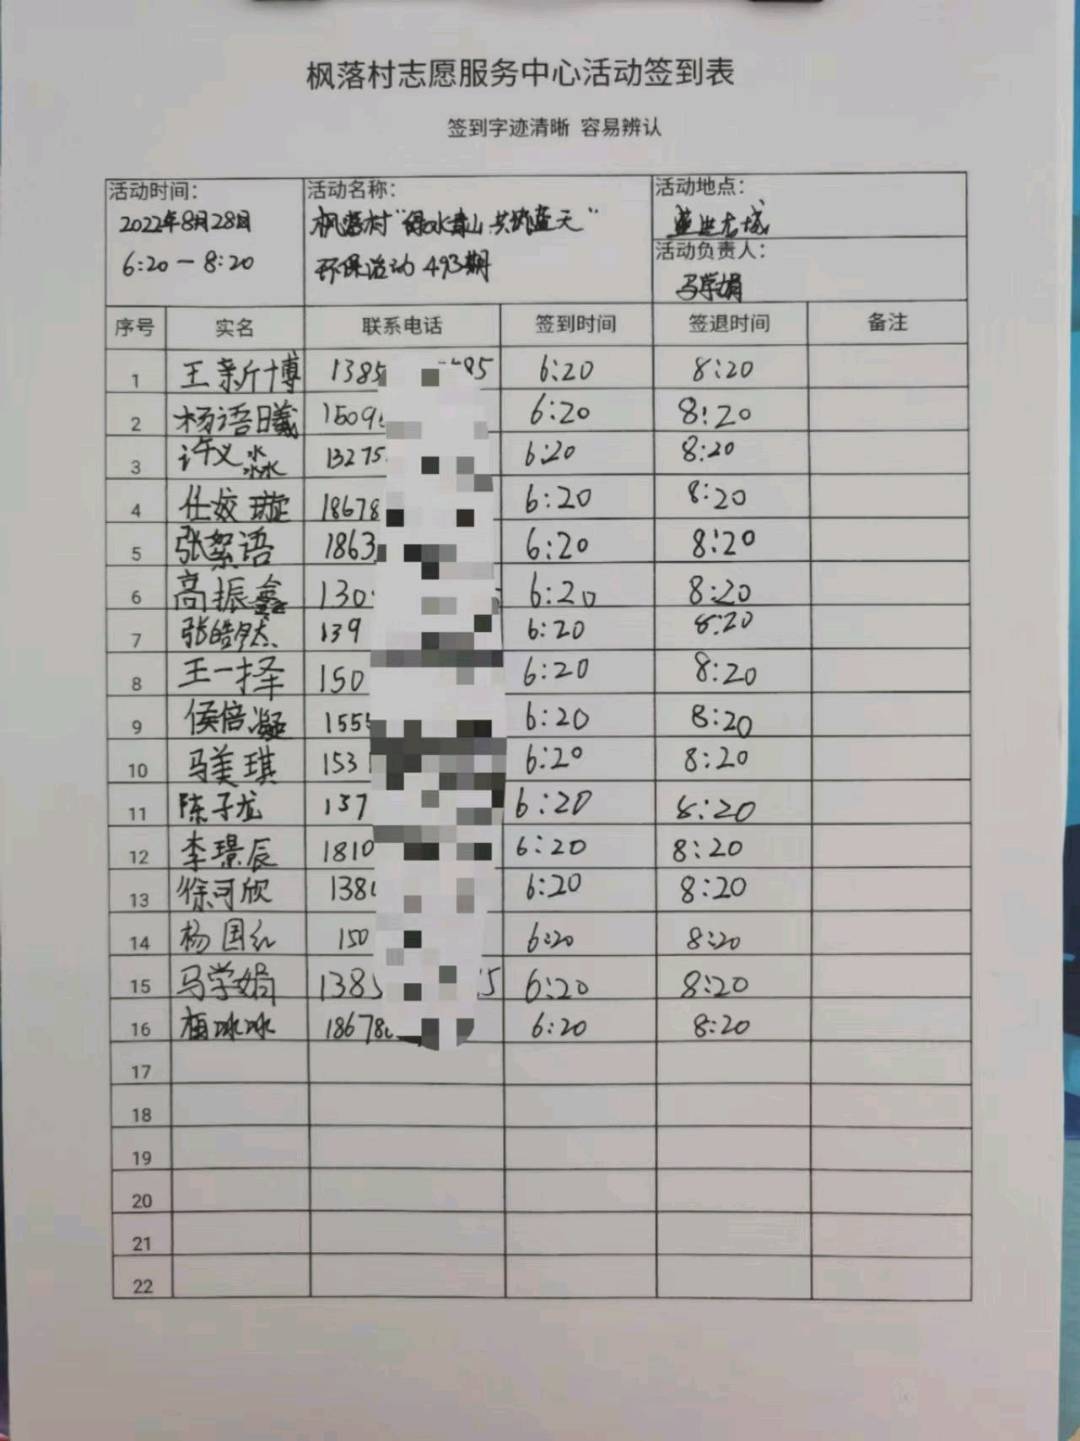 枫落村志愿服务中心活动签到表
签到字迹清晰 容易辨认
活动时间:
2022年8月28日
6:20-8:20
活动名称:
枫落村"绿水青山 共筑蓝天"
环保活动 493期
活动地点:
活动负责人:
马学娟
序号 实名 联系电话 签到时间 签退时间 备注
1 王新博 1385 95 6:20 8:20
2 杨语曦 1509 6:20 8:20
3 许义淼 13275 6:20 8:20
4 仕姣璇 18678 6:20 8:20
5 张絮语 1863 6:20 8:20
6 高振鑫 130 6:20 8:20
7 张皓然 139 6:20 8:20
8 王一择 150 6:20 8:20
9 侯倍凝 155 6:20 8:20
10 马美琪 153 6:20 8:20
11 陈子龙 137 6:20 8:20
12 李璟辰 1810 6:20 8:20
13 徐可欣 138 6:20 8:20
14 杨国红 150 6:20 8:20
15 马学娟 1385 5 6:20 8:20
16 冰冰 18678 6:20 8:20
17
18
19
20
21
22